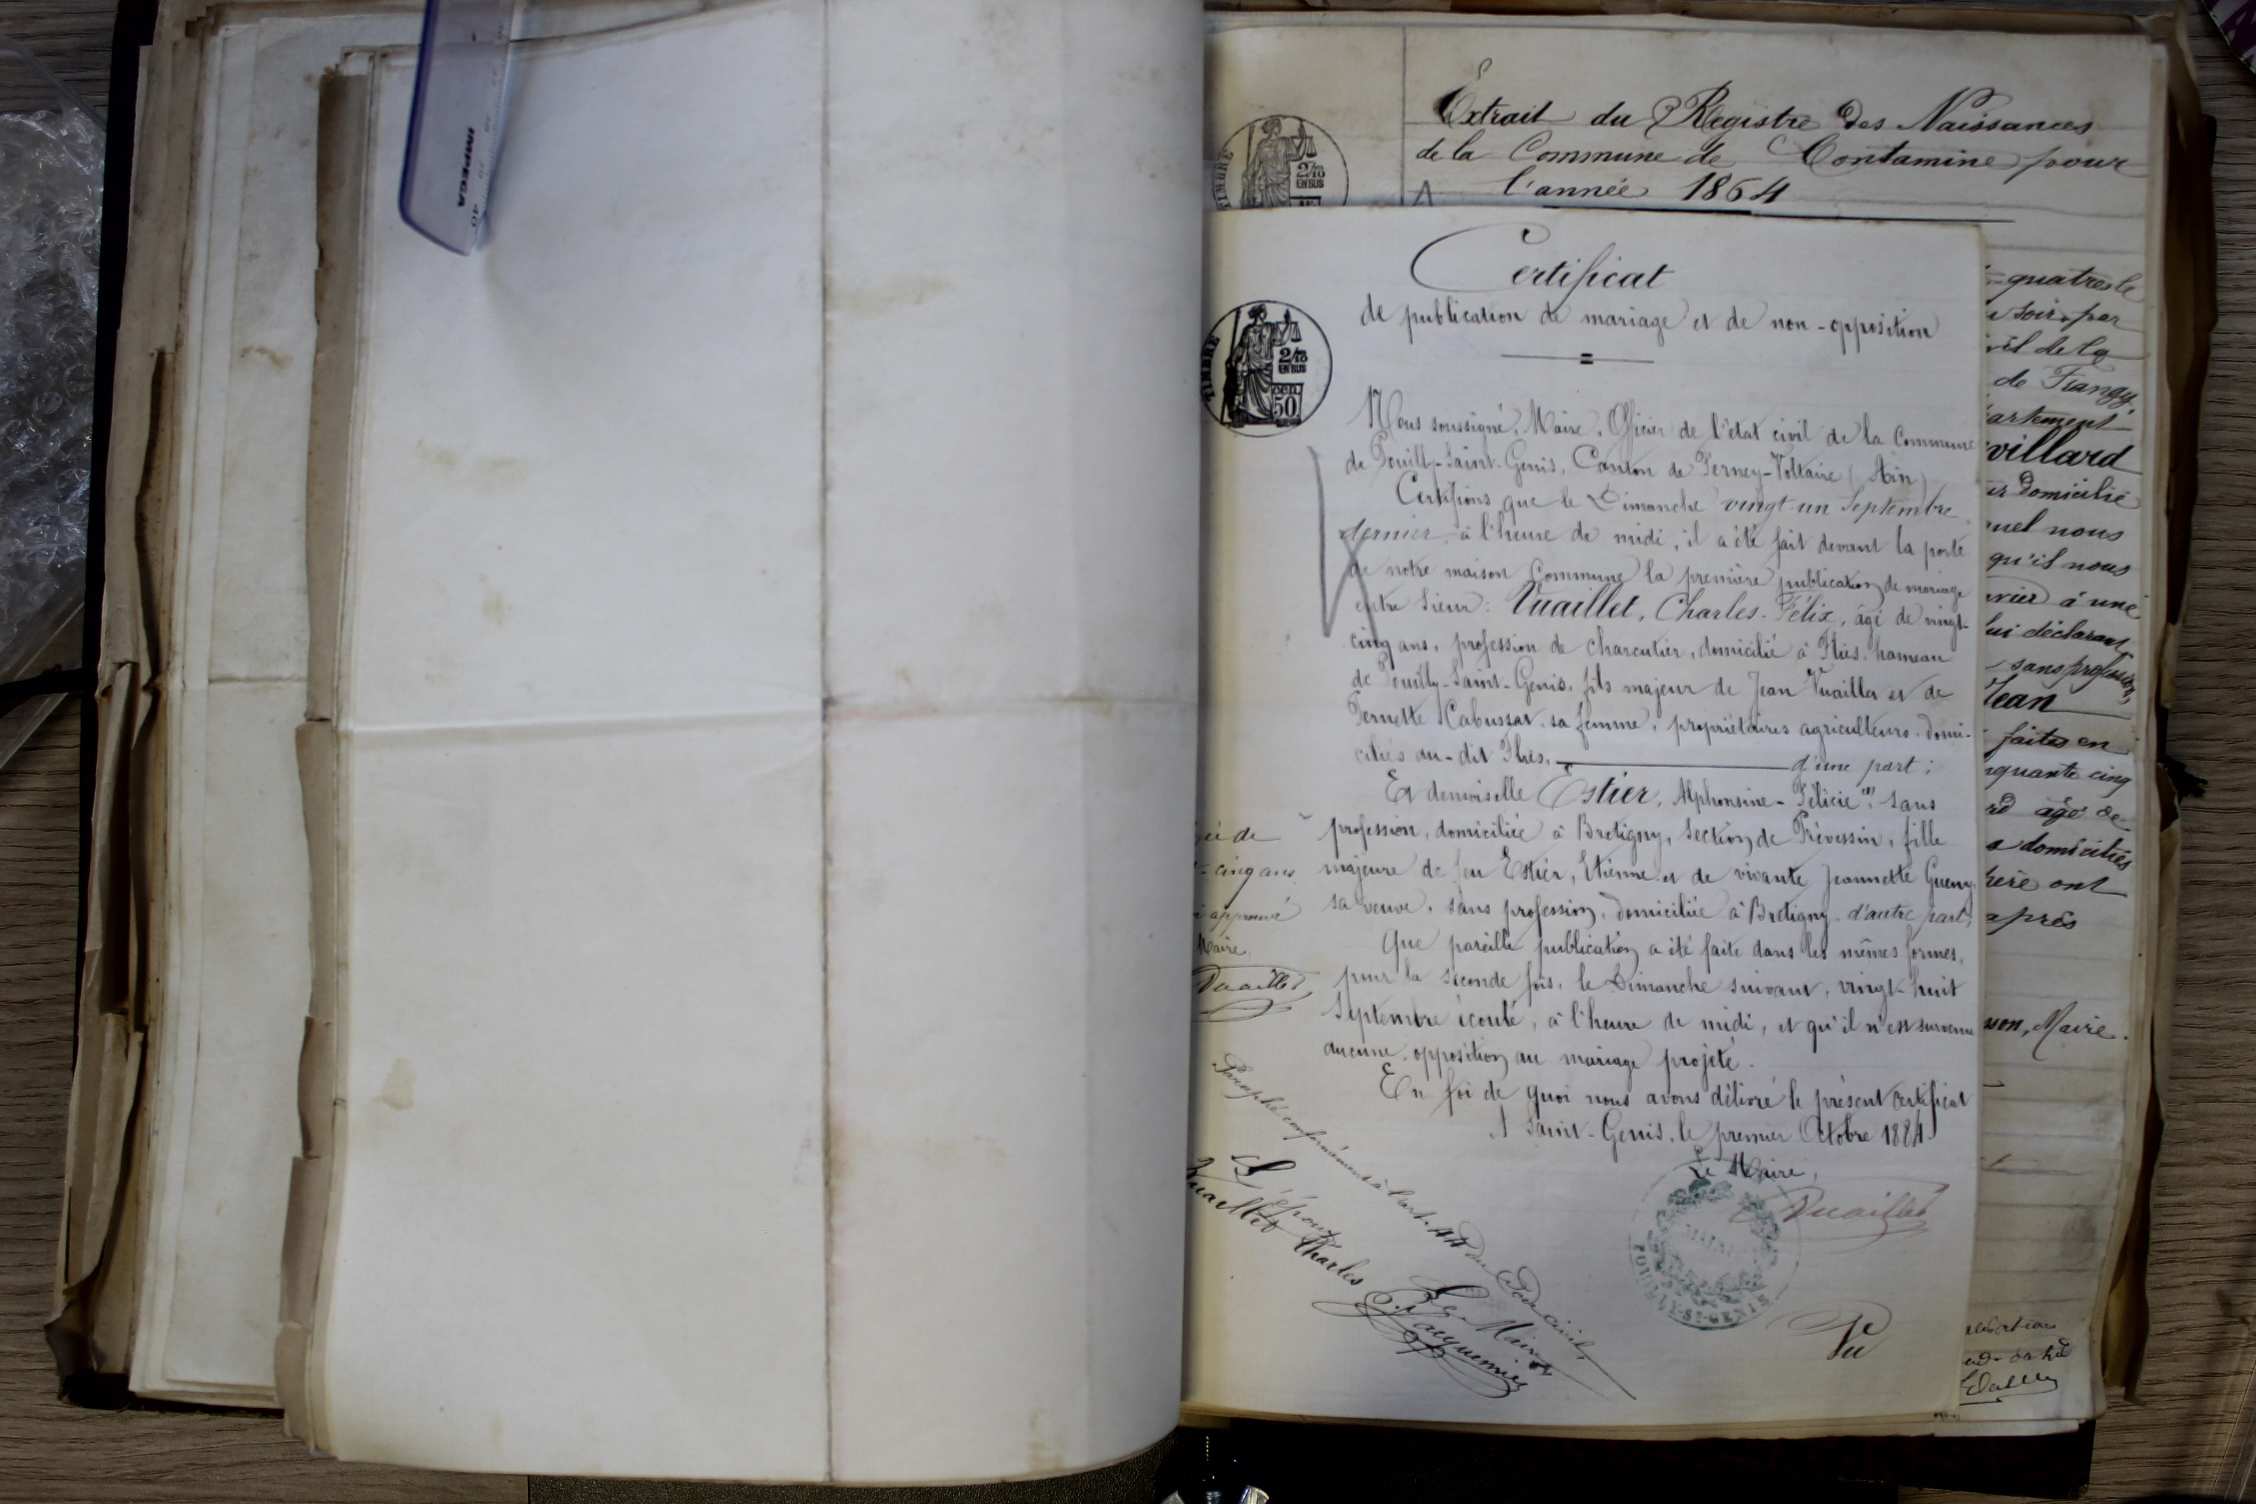 IMPEGA
40
Extrait du Registre des Naissances
de la Commune de Contamine pour
l'année 1864
TIMBRE
2/10
EN SUS
quatre le
soir par
de la
de Frangy
villard
domicilié
nous
qu'il nous
à une
déclarant
sans profession
Jean
faites en
cinq
âgé de
domiciliés
ont
après
Maire.
Certificat
de publication de mariage et de non-opposition
TIMBRE
2/10
EN SUS
50
Nous soussigné, Maire, Officier de l'état civil de la Commune
de Pouilly-Saint-Genis, Canton de Ferney-Voltaire (Ain)
Certifions que le Dimanche vingt-un Septembre
dernier, à l'heure de midi, il a été fait devant la porte
de notre maison Commune la première publication de mariage
entre Sieur: Vuaillet, Charles-Félix, âgé de vingt-
cinq ans, profession de charcutier, domicilié à hameau
de Pouilly-Saint-Genis, fils majeur de Jean Vuaillet et de
Pernette Cabussat sa femme, propriétaires agriculteurs domi-
ciliés au-dit d'une part;
Et demoiselle Estier, Alphonsine-Félicie (1) sans
profession, domiciliée à Bretigny, section de Prévessin, fille
majeure de feu Estier, Etienne et de vivante Jeannette
sa veuve, sans profession, domiciliée à Bretigny d'autre part,
Que pareille publication a été faite dans les mêmes formes,
pour la seconde fois, le Dimanche suivant, vingt-huit
Septembre écoulé, à l'heure de midi, et qu'il n'est survenu
aucune opposition au mariage projeté.
En foi de quoi nous avons délivré le présent certificat
A Saint-Genis, le premier Octobre 1884
Le Maire,
Vuaillet
POUILLY-ST-GENIS
Vu
de
cinq ans
approuvé
Maire.
Vuaillet
Paraphé conformément à l'art. 44 du Code civil,
L'époux
Vuaillet Charles
Le Maire
Jacquemier